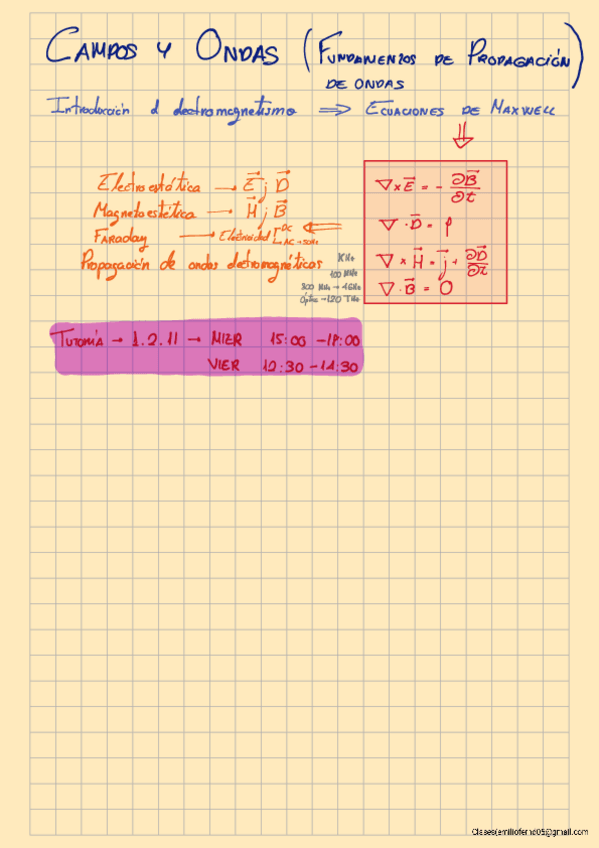 CAMPOS Y ONDAS (FUNDAMENTOS DE PROPAGACIÓN
DE ONDAS)
Introducción al electromagnetismo ⇒ ECUACIONES DE MAXWELL
⇓
Electroestática → E⃗ ; D⃗
Magnetoestática → H⃗ ; B⃗
FARADAY → Electricidad [DC AC→50Hz ⇐
Propagación de ondas electromagnéticas
KHz
100 MHz
300 MHz → 4GHz
Óptica → 120 THz
∇×E⃗ = - ∂B⃗/∂t
∇·D⃗ = ρ
∇×H⃗ = j⃗ + ∂D⃗/∂t
∇·B⃗ = 0
TUTORÍA → 1.2.11 → MIER 15:00 - 18:00
VIER 12:30 - 14:30
Clases(emiliofernd05@gmail.com